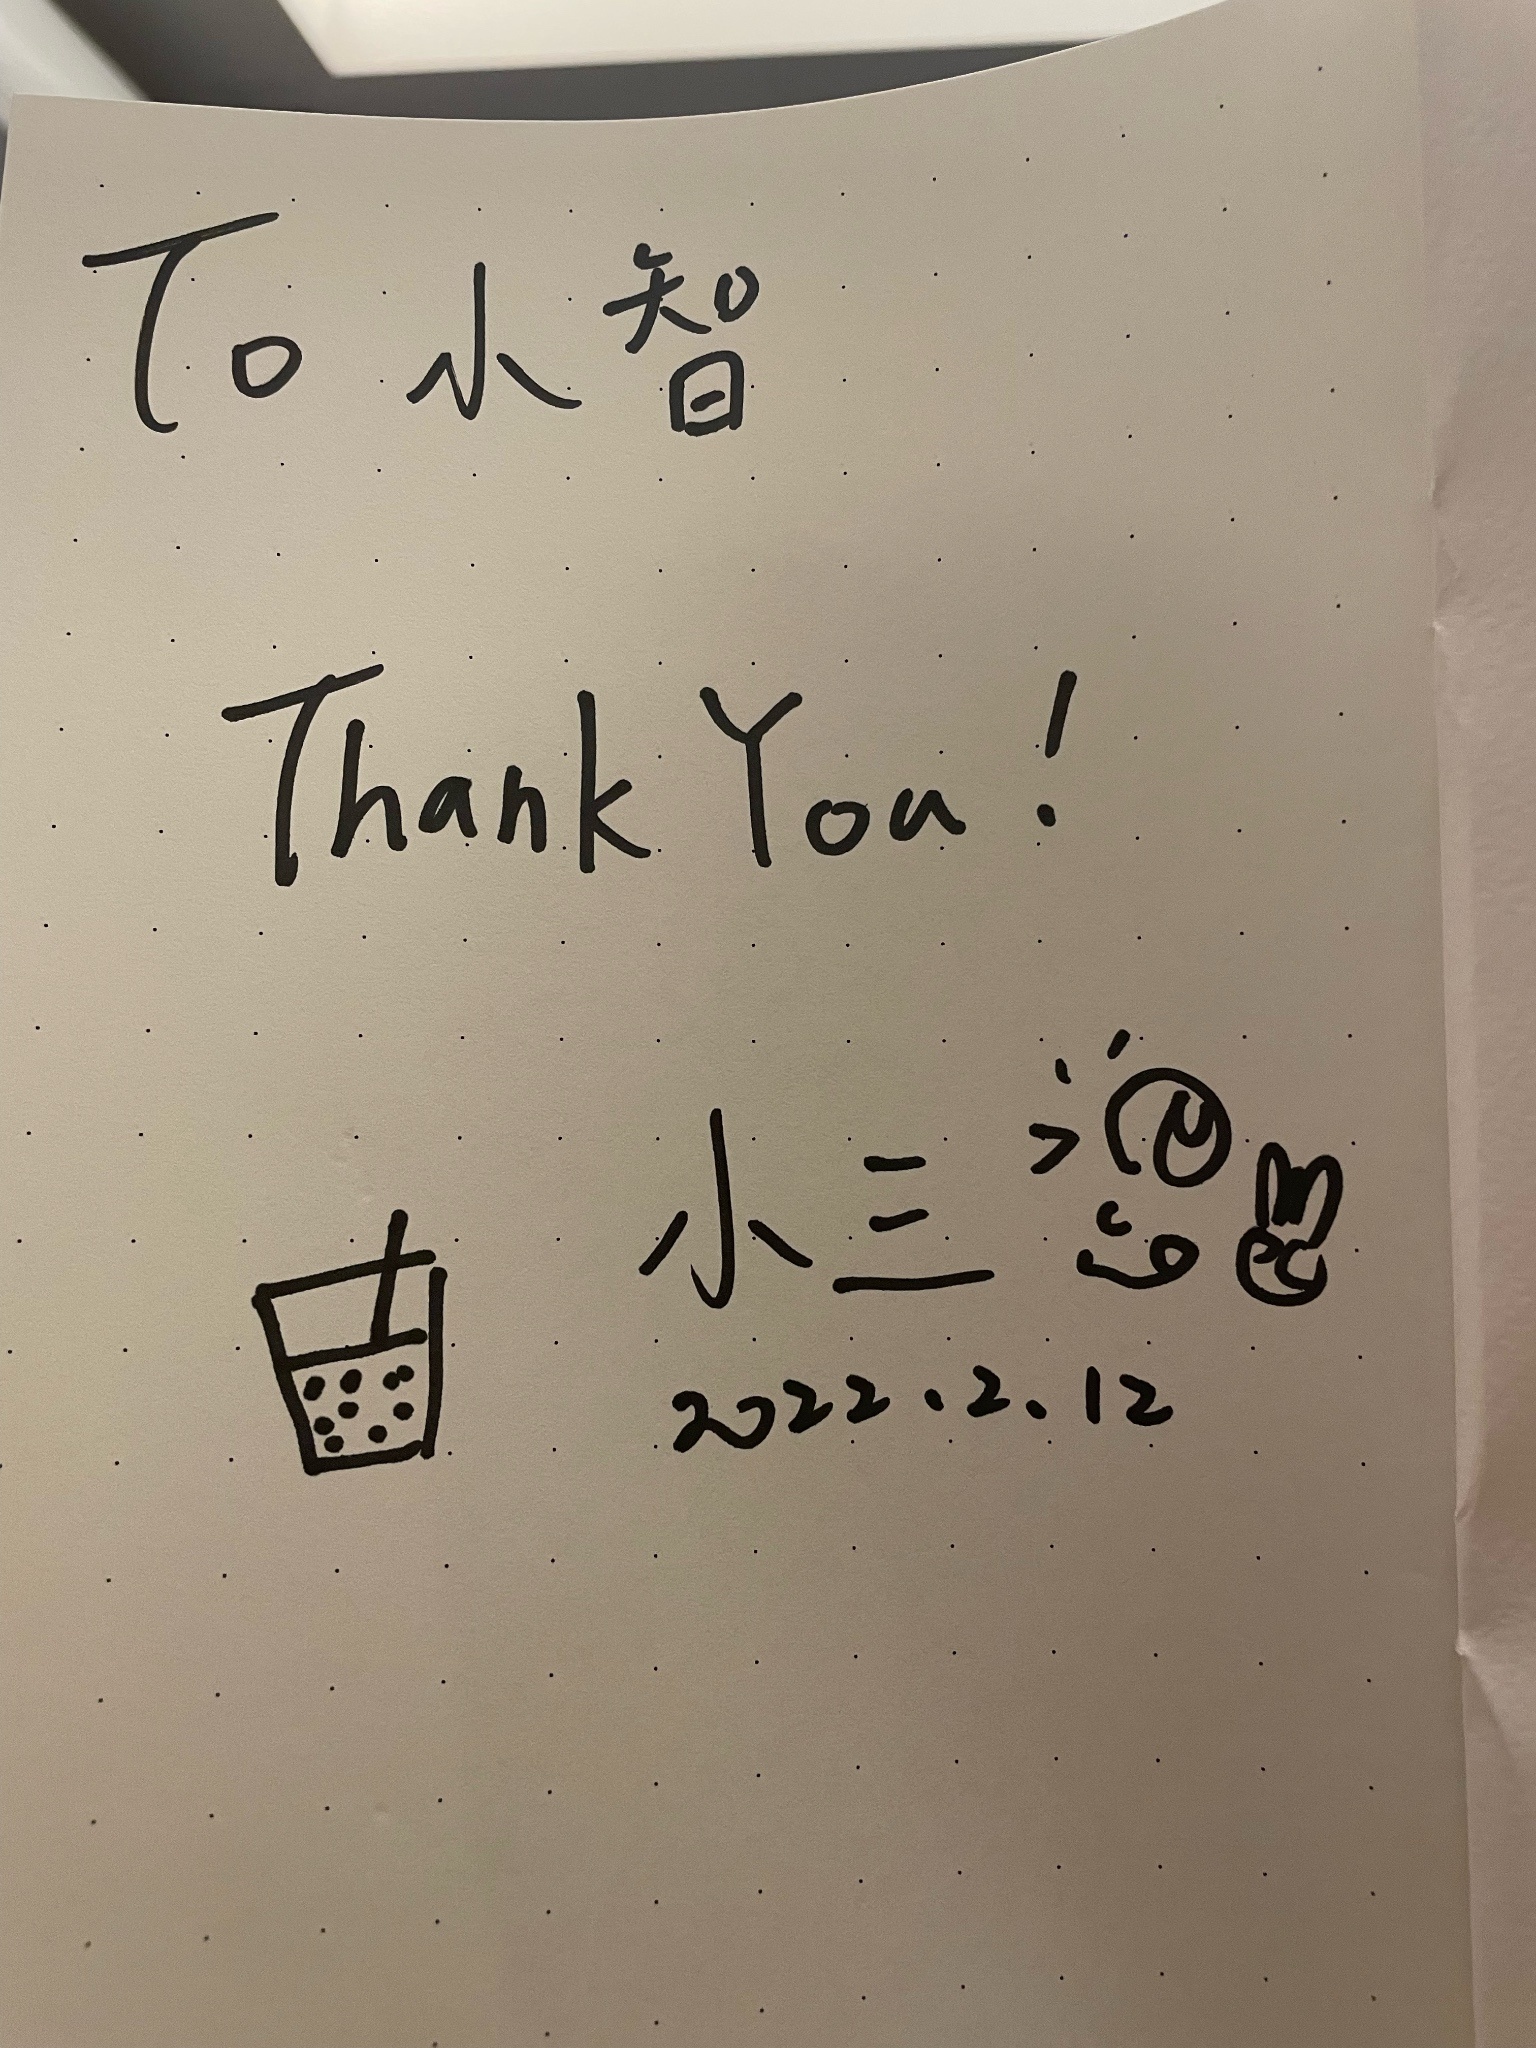 To 小智
Thank You!
小三
2022.2.12